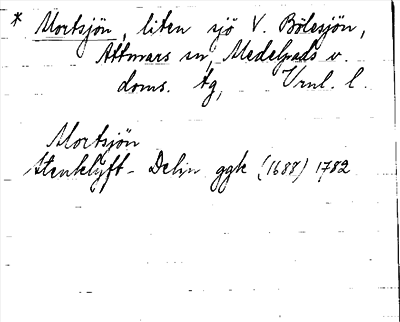 * Mortsjön, liten sjö V. Bölesjön,
Attmars sn, Medelpads v.
doms. tg, Vrnl. l.
Mortsjön
Stenklyft - Delin ggk (1688) 1782